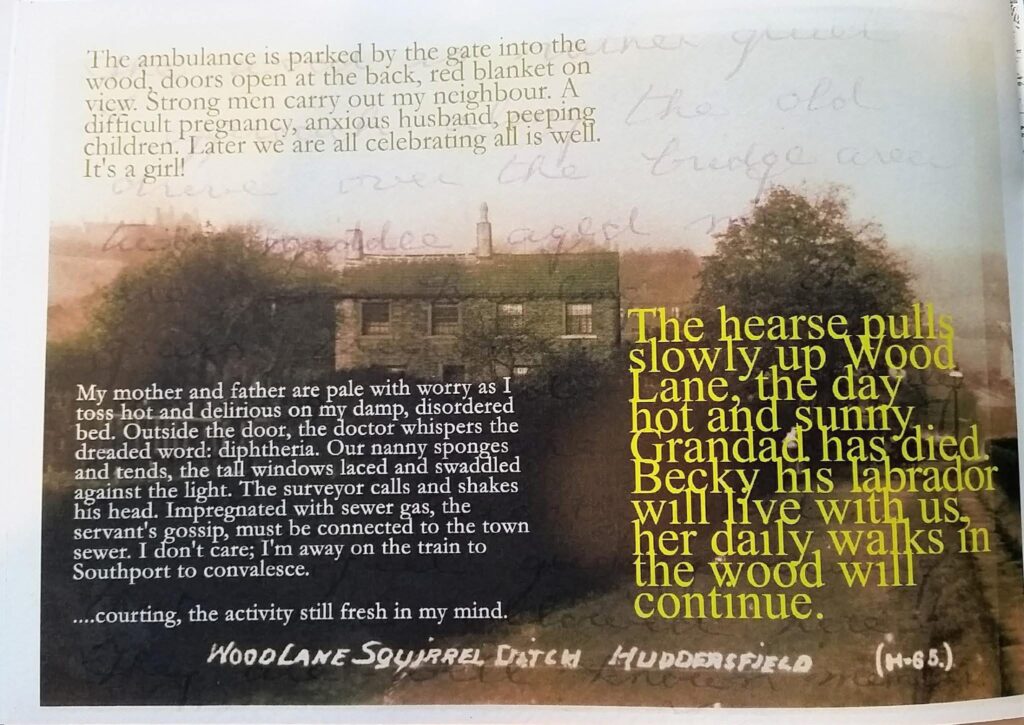 The ambulance is parked by the gate into the
wood, doors open at the back, red blanket on
view. Strong men carry out my neighbour. A
difficult pregnancy, anxious husband, peeping
children. Later we are all celebrating all is well.
It's a girl!
the old
over the bridge
aged
My mother and father are pale with worry as I
toss hot and delirious on my damp, disordered
bed. Outside the door, the doctor whispers the
dreaded word: diphtheria. Our nanny sponges
and tends, the tall windows laced and swaddled
against the light. The surveyor calls and shakes
his head. Impregnated with sewer gas, the
servant's gossip, must be connected to the town
sewer. I don't care; I'm away on the train to
Southport to convalesce.
....courting, the activity still fresh in my mind.
The hearse pulls
slowly up Wood
Lane, the day
hot and sunny.
Grandad has died.
Becky his labrador
will live with us,
her daily walks in
the wood will
continue.
WOOD LANE SQUIRREL DITCH HUDDERSFIELD (H-65.)